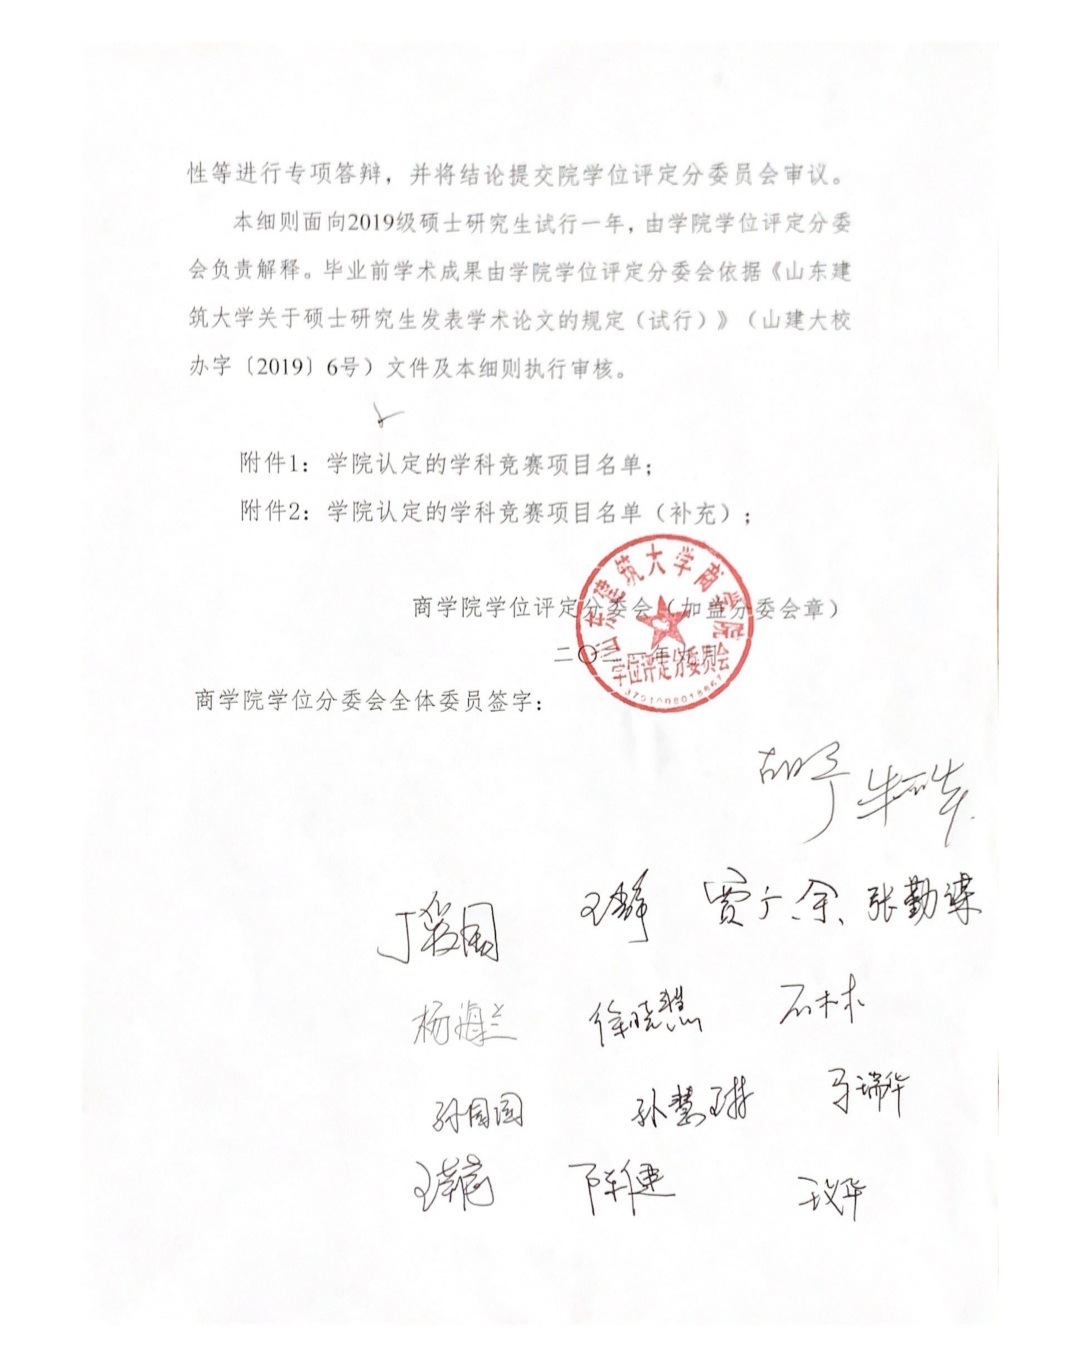 性等进行专项答辩，并将结论提交院学位评定分委员会审议。
本细则面向2019级硕士研究生试行一年，由学院学位评定分委
会负责解释。毕业前学术成果由学院学位评定分委会依据《山东建
筑大学关于硕士研究生发表学术论文的规定（试行）》（山建大校
办字〔2019〕6号）文件及本细则执行审核。
附件1：学院认定的学科竞赛项目名单；
附件2：学院认定的学科竞赛项目名单（补充）；
商学院学位评定分委会（加盖分委会章）
山东建筑大学商学院
学位评定分委员会
商学院学位分委会全体委员签字：
胡宁
王静 贾广余、张勤谋
杨海兰 徐晓慧 石林
孙国圆 孙慧琳 马瑞华
陈健